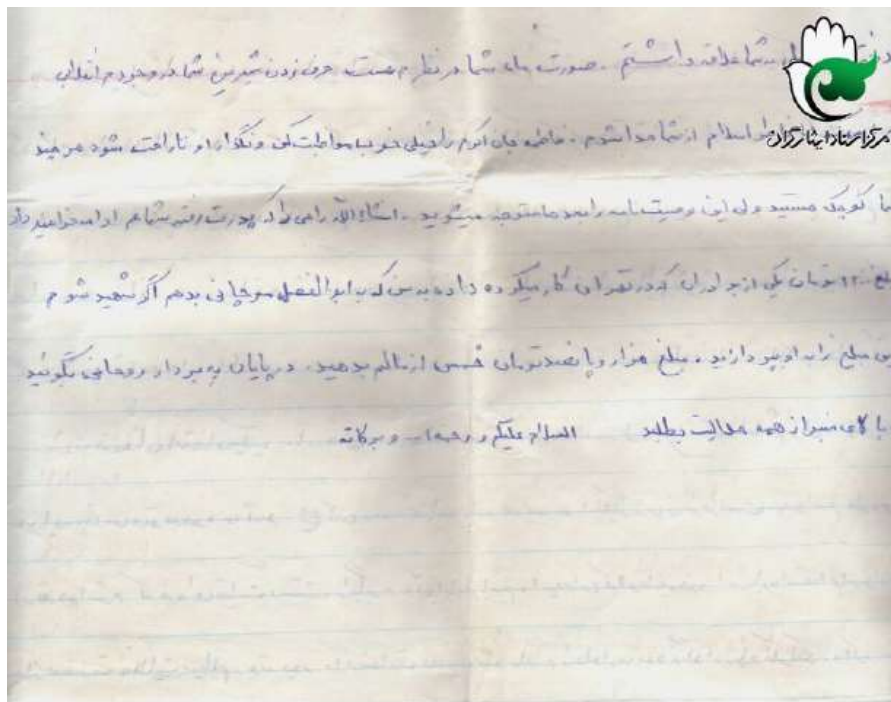 به شما علاقه داشتم . صورت ماه شما در نظرم هست حرف زدن شیرین شما در وجودم انقلابی
اسلام از شما جدا شوم . فاطمه جان اکرم را خیلی خوب مواظبت کن و نگذار او ناراحت شود هر چند
کوچک هستید ولی این وصیت نامه را بعدها متوجه میشوید . انشاءالله راهی را که پدرت رفته شما هم ادامه خواهید داد
تومان یکی از برادران که در تهران کار میکرده داده به من که به ابوالفضل بدهم اگر شهید شدم
مبلغ را به او بپردازید . مبلغ هزار و پانصد تومان خمس از مالم بدهید . در پایان به برادر روحانی بگوئید
بالای منبر از همه حلالیت بطلبد السلام علیکم و رحمه ا... و برکاته
مرکز اسناد ایثارگران